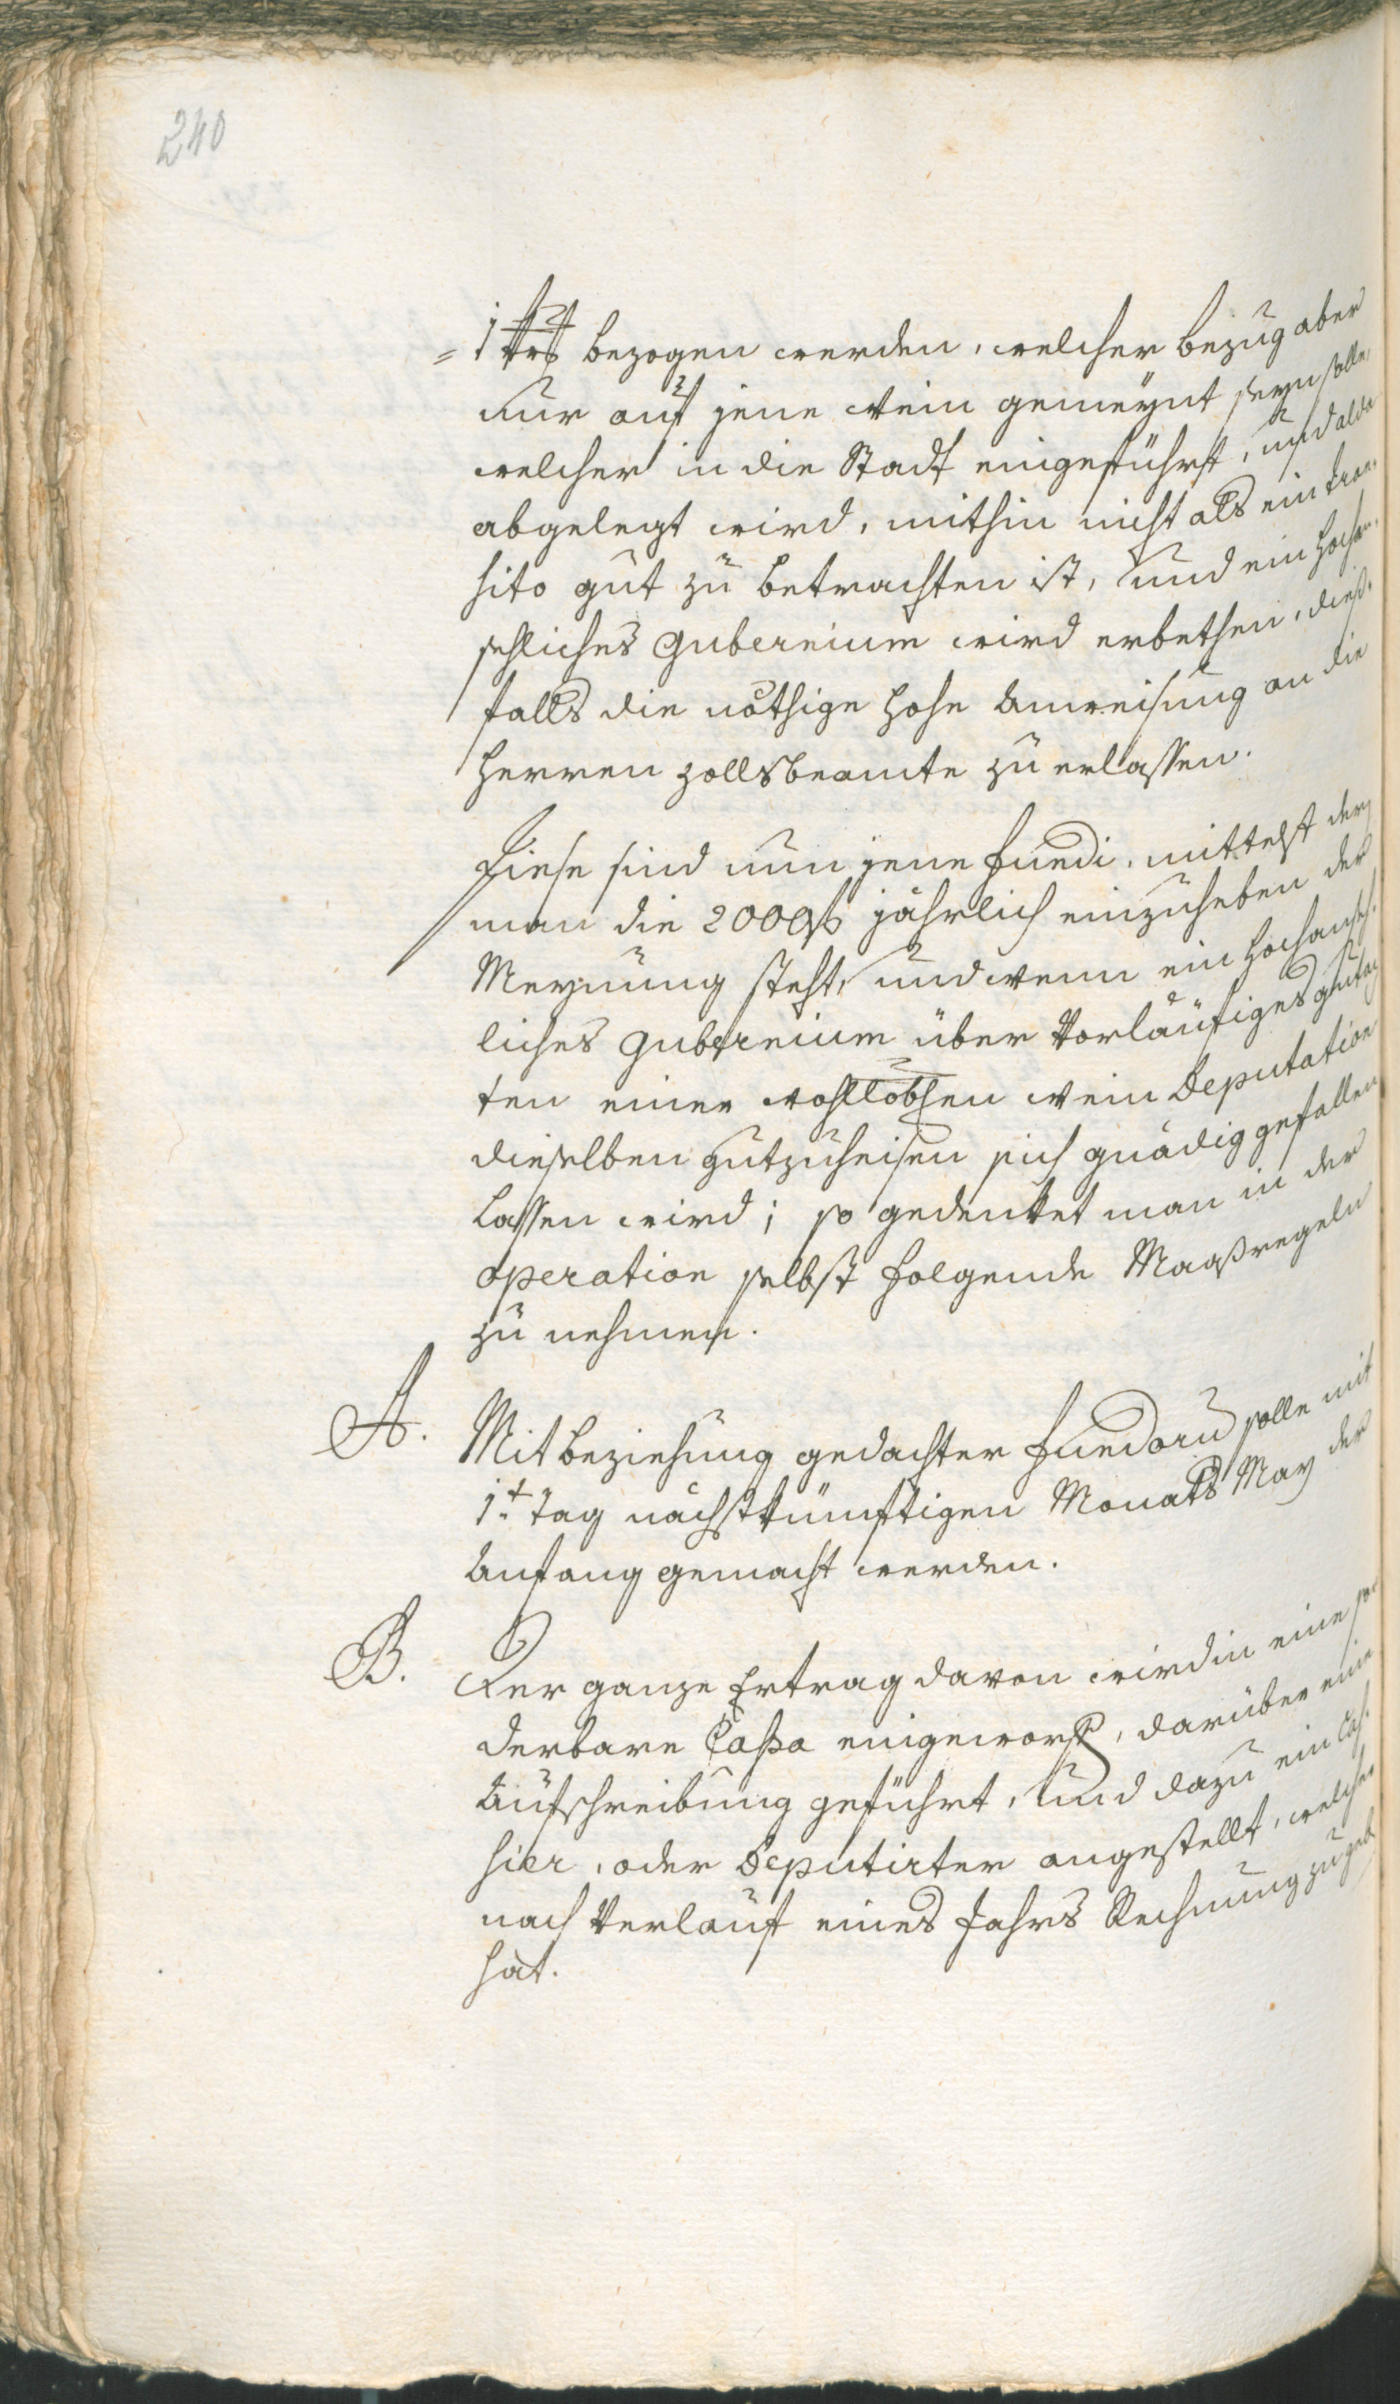 240
= 1 xr bezogen werden, welcher bezug aber
nur auf jene Wein gemeynt seyn solle,
welcher in die Stadt eingeführt, und alda
abgelegt wird, mithin nicht als ein tran¬
sito gut zu betrachten ist, und ein hochan¬
sehliches Gubernium wird erbethen, dies¬
falls die nöthige hohe Anweisung an die
Herren Zollsbeamte zu erlassen.
Diese sind nun jene Fundi, mittelst deren
man die 2000 f jährlich einzuheben der
Meynung steht, und wenn ein hochanseh¬
liches Gubernium über Vorläufiges gutach
ten einer wohllobhen Wein Deputation
dieselben gutzuheisen sich gnädig gefallen
lassen wird; so gedenket man in der
operation selbst folgende Maaßregeln
zu nehmen.
A. Mit beziehung gedachter Fundoru solle mit
1t. tag nächstkünftigen Monats May der
Anfang gemacht werden.
B. Der ganze Ertrag davon wird in eine son
derbare Cassa eingeworfen, darüber eine
Aufschreibung geführt, und dazu ein Cas¬
sier, oder Deputirter angestellt, welcher
nach Verlauf eines Jahrs Rechnung zu geben
hat.